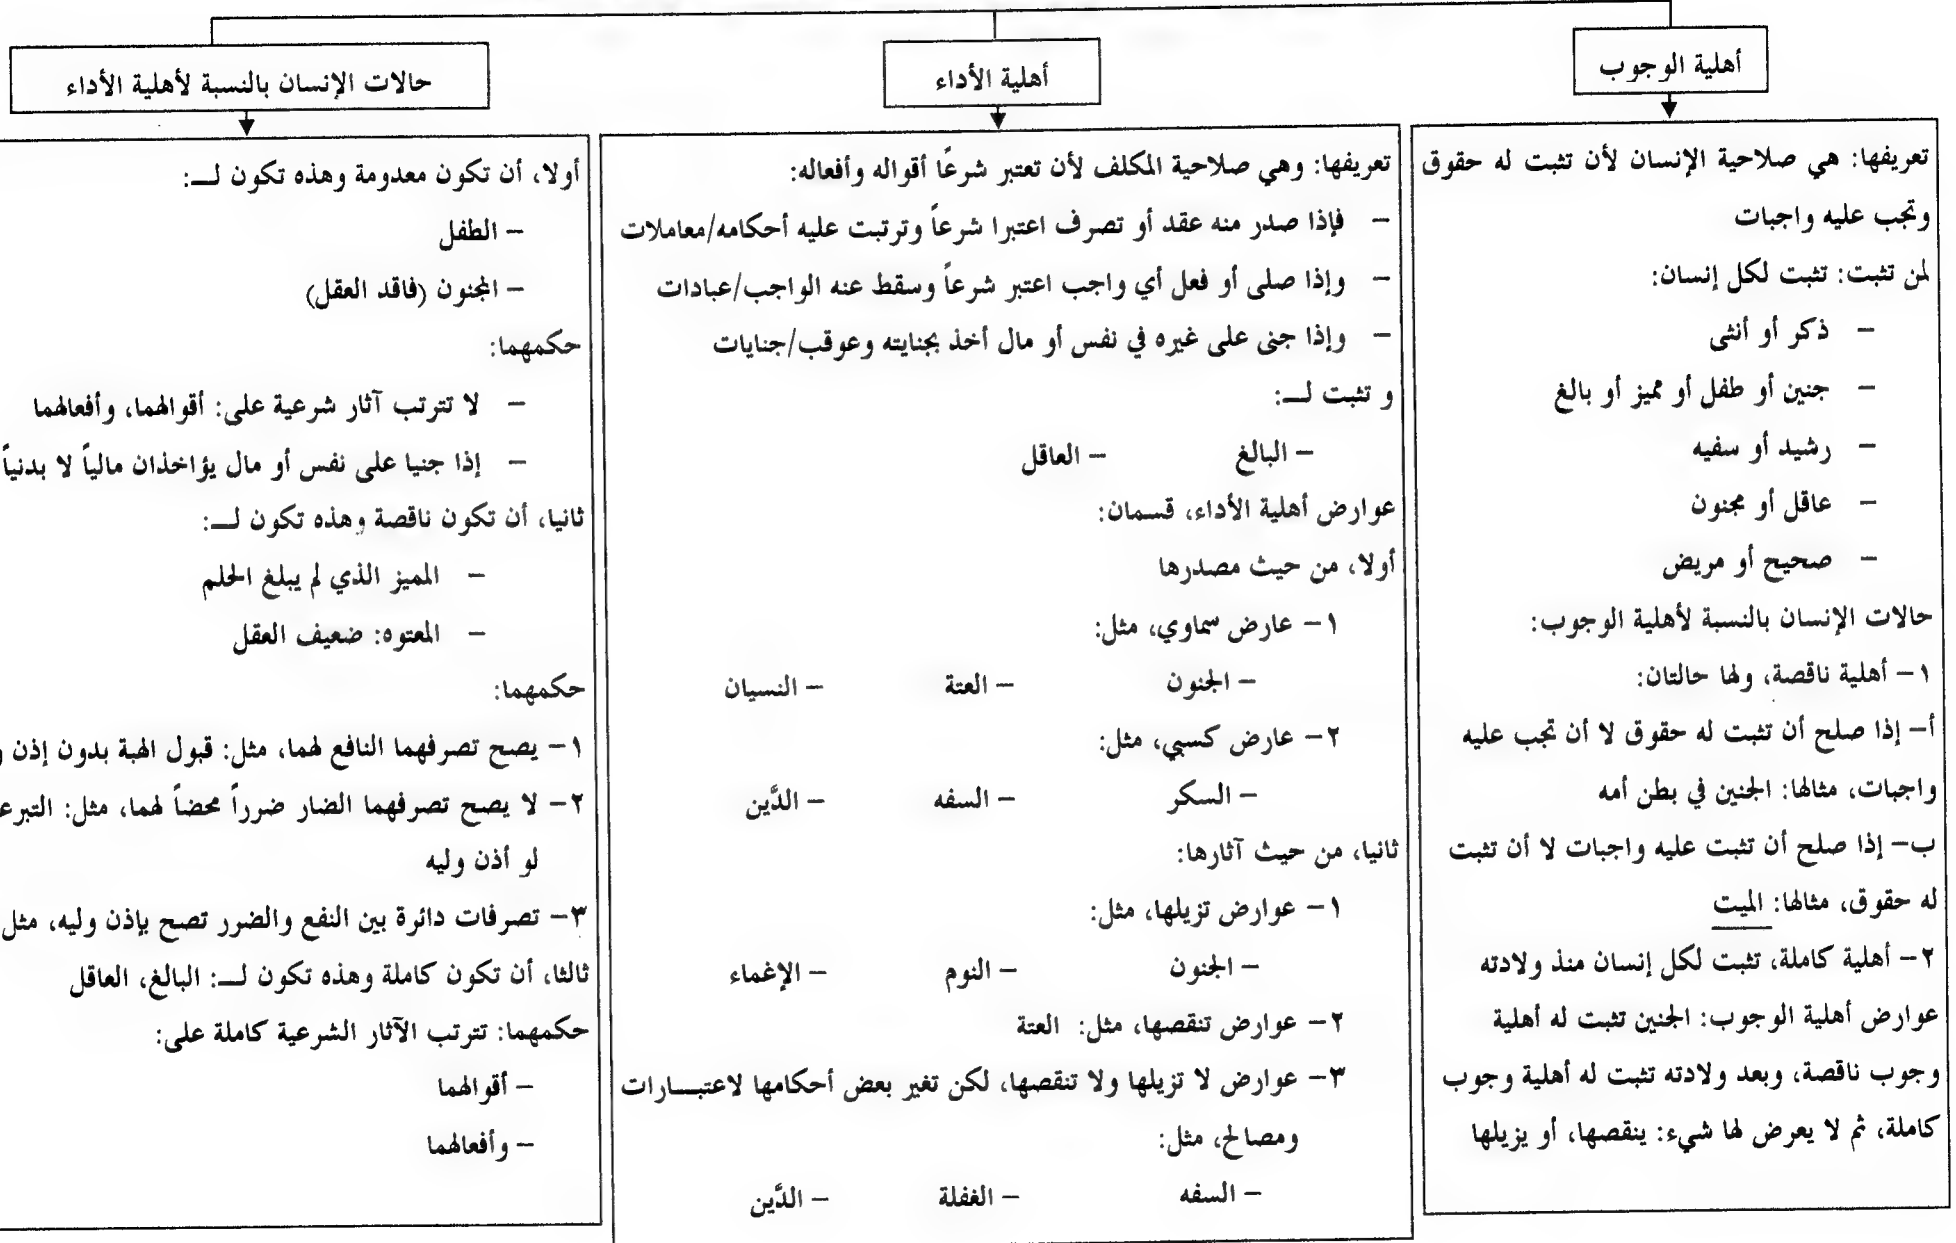 أهلية الوجوب
تعريفها: هي صلاحية الإنسان لأن تثبت له حقوق
وتجب عليه واجبات
لمن تثبت: تثبت لكل إنسان:
– ذكر أو أنثى
– جنين أو طفل أو مميز أو بالغ
– رشيد أو سفيه
– عاقل أو مجنون
– صحيح أو مريض
حالات الإنسان بالنسبة لأهلية الوجوب:
١– أهلية ناقصة، ولها حالتان:
أ– إذا صلح أن تثبت له حقوق لا أن تجب عليه
واجبات، مثالها: الجنين في بطن أمه
ب– إذا صلح أن تثبت عليه واجبات لا أن تثبت
له حقوق، مثالها: الميت
٢– أهلية كاملة، تثبت لكل إنسان منذ ولادته
عوارض أهلية الوجوب: الجنين تثبت له أهلية
وجوب ناقصة، وبعد ولادته تثبت له أهلية وجوب
كاملة، ثم لا يعرض لها شيء: ينقصها، أو يزيلها
أهلية الأداء
تعريفها: وهي صلاحية المكلف لأن تعتبر شرعًا أقواله وأفعاله:
– فإذا صدر منه عقد أو تصرف اعتبرا شرعاً وترتبت عليه أحكامه/معاملات
– وإذا صلى أو فعل أي واجب اعتبر شرعاً وسقط عنه الواجب/عبادات
– وإذا جنى على غيره في نفس أو مال أخذ بجنايته وعوقب/جنايات
و تثبت لــ:
– البالغ – العاقل
عوارض أهلية الأداء، قسمان:
أولا، من حيث مصدرها
١– عارض سماوي، مثل:
– الجنون – العتة – النسيان
٢– عارض كسبي، مثل:
– السكر – السفه – الدَّين
ثانيا، من حيث آثارها:
١– عوارض تزيلها، مثل:
– الجنون – النوم – الإغماء
٢– عوارض تنقصها، مثل: العتة
٣– عوارض لا تزيلها ولا تنقصها، لكن تغير بعض أحكامها لاعتبــارات
ومصالح، مثل:
– السفه – الغفلة – الدَّين
حالات الإنسان بالنسبة لأهلية الأداء
أولا، أن تكون معدومة وهذه تكون لــ:
– الطفل
– المجنون (فاقد العقل)
حكمهما:
– لا تترتب آثار شرعية على: أقوالهما، وأفعالهما
– إذا جنيا على نفس أو مال يؤاخذان مالياً لا بدنياً
ثانيا، أن تكون ناقصة وهذه تكون لــ:
– المميز الذي لم يبلغ الحلم
– المعتوه: ضعيف العقل
حكمهما:
١– يصح تصرفهما النافع لهما، مثل: قبول الهبة بدون إذن
٢– لا يصح تصرفهما الضار ضرراً محضاً لهما، مثل:
لو أذن وليه
٣– تصرفات دائرة بين النفع والضرر تصح بإذن وليه، مثل
ثالثا، أن تكون كاملة وهذه تكون لــ: البالغ، العاقل
حكمهما: تترتب الآثار الشرعية كاملة على:
– أقوالهما
– وأفعالهما